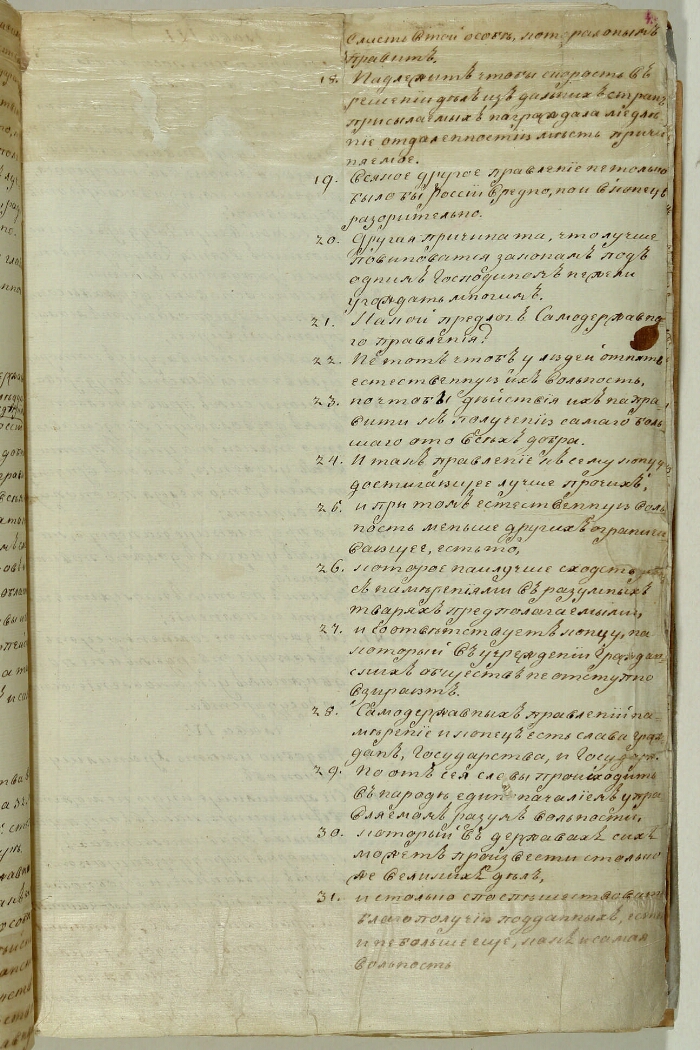 власть в той особѣ, которая оным
правитъ.
18. Надлежитъ чтобы скорость въ
рѣшеніи дѣлъ изъ дальныхъ странъ
присылаемыхъ награждала медлѣ
ніе отдаленностію мѣстъ причи
няемое.
19. Всякое другое правленіе не только
было бы россіи вредно, но и въ конецъ
разорительно.
20. Другая причина та, что лучше
повиноватся законамъ подъ
однимъ Господиномъ нежели
угождать многимъ.
21. Какой предлогъ Самодержавна
го правленія?
22. Не тотъ чтобъ у людей отнять
естественную ихъ вольность,
23. но чтобы дѣйствія ихъ напра
вити къ полученію самаго боль
шаго ото всѣхъ добра.
24. И такъ правленіе къ сему концу
достигающее лучше прочихъ,
25. и при томъ естественную воль
ность меньше другихъ ограничи
вающее, есть то,
26. которое наилучше сходств
съ намѣреніями въ разумныхъ
тваряхъ предполагаемыми,
27. и соотвѣтствуетъ концу, на
который въ учрежденіи граждан
скихъ обществъ не отступно
взираютъ.
28. Самодержавныхъ правленій на
мѣреніе и конецъ есть слава граж
данъ, Государства, и Государя.
29. Но отъ сея славы происходитъ
въ народѣ единоначаліемъ упра
вляемомъ разумъ вольности,
30. который въ державахъ сихъ
можетъ произвести столько
же великихъ дѣлъ,
31. и столько споспѣшествовати
благополучію подданныхъ, есть
и не больше еще, какъ и самая
вольность